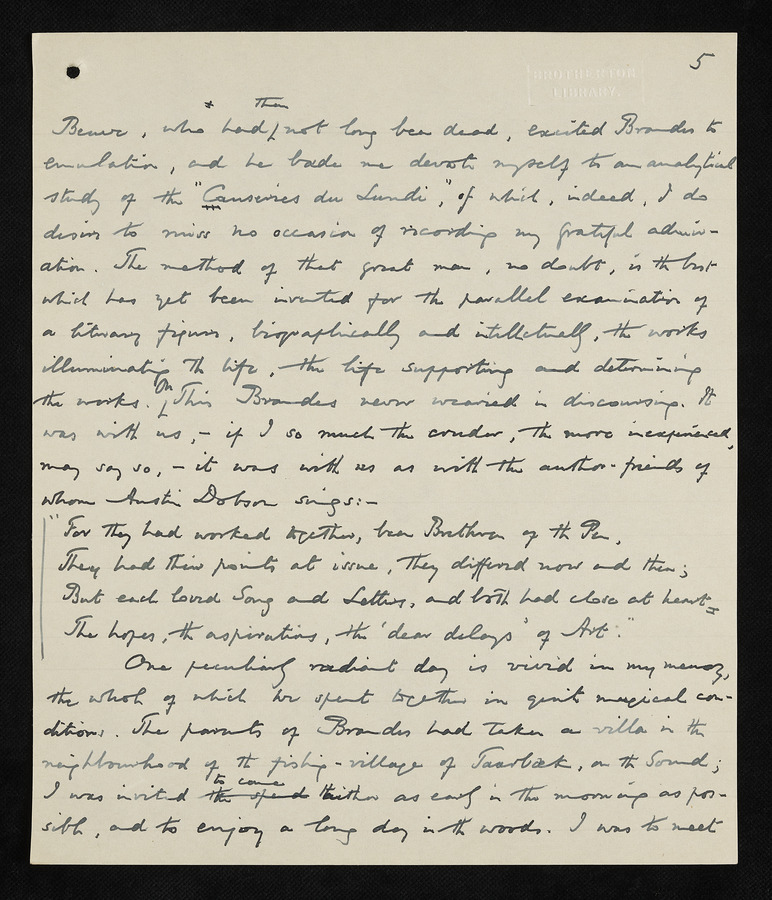 5
BROTHERTON
LIBRARY.
then
Beuve, who had not long been dead, excited Brandes to
emulation, and he bade me devote myself to an analytical
study of the "Causeries du Lundi", of which, indeed, I do
desire to miss no occasion of recording my grateful admir-
ation. The method of that great man, no doubt, is the best
which has yet been invented for the parallel examination of
a literary figure, biographically and intellectually, the works
illuminating the life, the life supporting and determining
the works. On This Brandes never wearied in discoursing. It
was with us, – if I so much the cruder, the more inexperienced,
may say so, – it was with us as with the author-friends of
whom Austin Dobson sings:–
"For they had worked together, been Brethren of the Pen,
They had their points at issue, they differed now and then;
But each loved Song and Letters, and both had close at heart
The hopes, the aspirations, the 'dear delays' of Art."
One peculiarly radiant day is vivid in my memory,
the whole of which we spent together in quite magical con-
ditions. The parents of Brandes had taken a villa in the
neighbourhood of the fishing-village of Taarbæk, on the Sound;
to come
I was invited the spend thither as early in the morning as pos-
sible, and to enjoy a long day in the woods. I was to meet